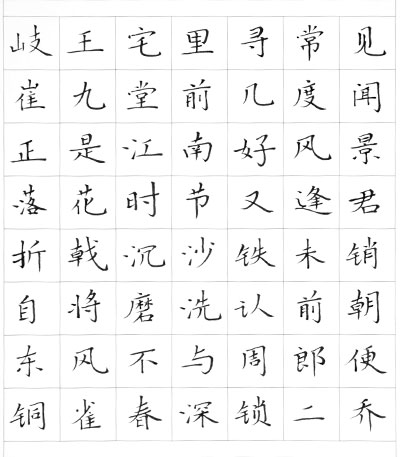 岐王宅里寻常见
崔九堂前几度闻
正是江南好风景
落花时节又逢君
折戟沉沙铁未销
自将磨洗认前朝
东风不与周郎便
铜雀春深锁二乔